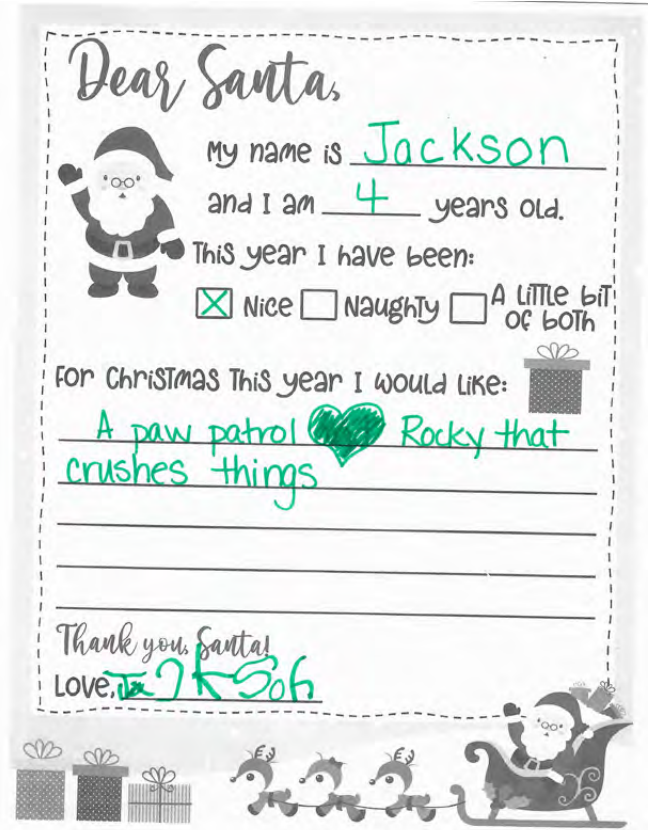 Dear Santa,
My name is Jackson
and I am 4 years old.
This year I have been:
X Nice Naughty A little bit
of both
For Christmas this year I would like:
A paw patrol Rocky that
crushes things
Thank you, Santa!
Love, Jackson